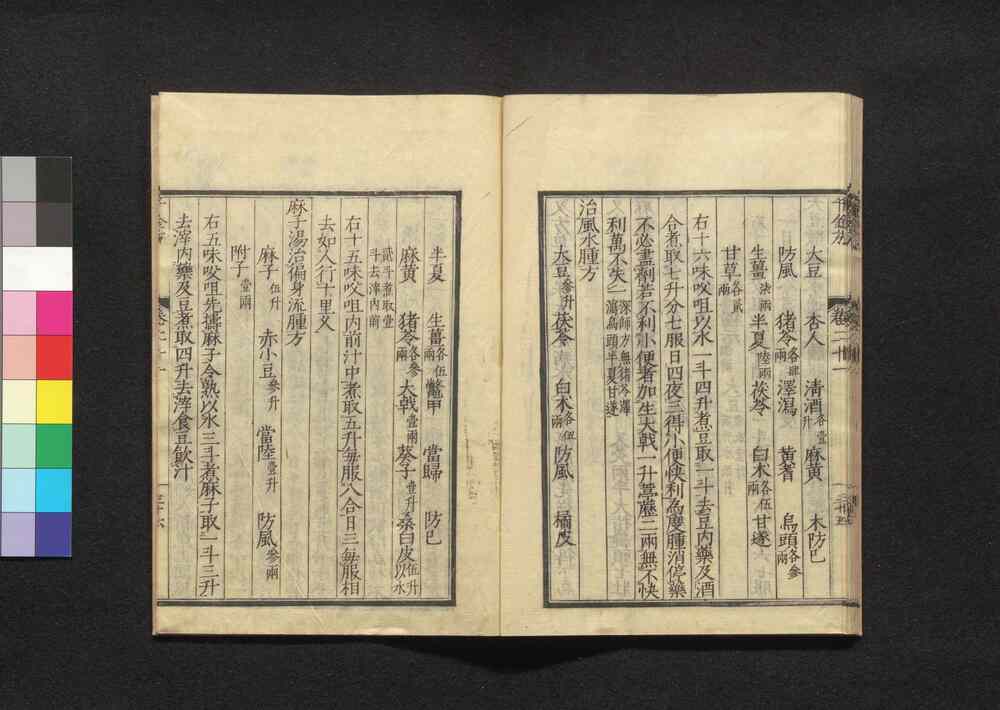 千金方 卷二十一
大豆 杏人 清酒各壹升 麻黃 木防已
防風 猪苓各肆兩 澤瀉 黃耆 烏頭各參兩
生薑柒兩 半夏陸兩 茯苓 白术各伍兩 甘遂
甘草各貳兩
右十六味㕮咀以水一斗四升煮豆取一斗去豆內藥及酒
合煮取七升分七服日四夜三得小便快利為度腫消停藥
不必盡劑若不利小便者加生大戟一升葶藶二兩無不快
利萬不失一深師方無猪苓澤瀉烏頭半夏甘遂
治風水腫方
大豆參升 茯苓 白术各伍兩 防風 橘皮
半夏 生薑各伍兩 當陸 防已
麻黃 猪苓各參兩 大戟壹兩 葵子壹升 桑白皮伍升以水
貳斗煮取壹斗去滓內前
右十五味㕮咀內前汁中煮取五升每服八合日三每服相
去如人行十里久
麻子湯治徧身流腫方
麻子伍升 赤小豆參升 當陸壹升 防風參兩
附子壹兩
右五味㕮咀先擣麻子令熟以水三斗煮麻子取一斗三升
去滓內藥及豆煮取四升去滓食豆飲汁